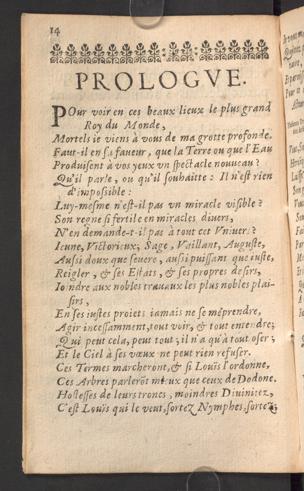 14
PROLOGVE.
POur voir en ces beaux lieux le plus grand
Roy du Monde,
Mortels ie viens à vous de ma grotte profonde.
Faut-il en sa faueur, que la Terre ou que l'Eau
Produisent à vos yeux vn spectacle nouueau?
Qu'il parle, ou qu'il souhaitte: Il n'est rien
d'impossible:
Luy-mesme n'est-il pas vn miracle visible?
Son regne si fertile en miracles diuers,
N'en demande-t-il pas à tout cet Vniuers?
Ieune, Victorieux, Sage, Vaillant, Auguste,
Aussi doux que seuere, aussi puissant que iuste,
Reigler, & ses Estats, & ses propres desirs,
Ioindre aux nobles trauaux les plus nobles plai-
sirs,
En ses iustes proiets iamais ne se méprendre,
Agir incessamment, tout voir, & tout entendre;
Qui peut cela, peut tout; il n'a qu'à tout oser;
Et le Ciel à ses vœux ne peut rien refuser.
Ces Termes marcheront, & si Louïs l'ordonne,
Ces Arbres parlerõt mieux que ceux de Dodone.
Hostesses de leurs troncs, moindres Diuinitez,
C'est Louïs qui le veut, sortez Nymphes, sortez;